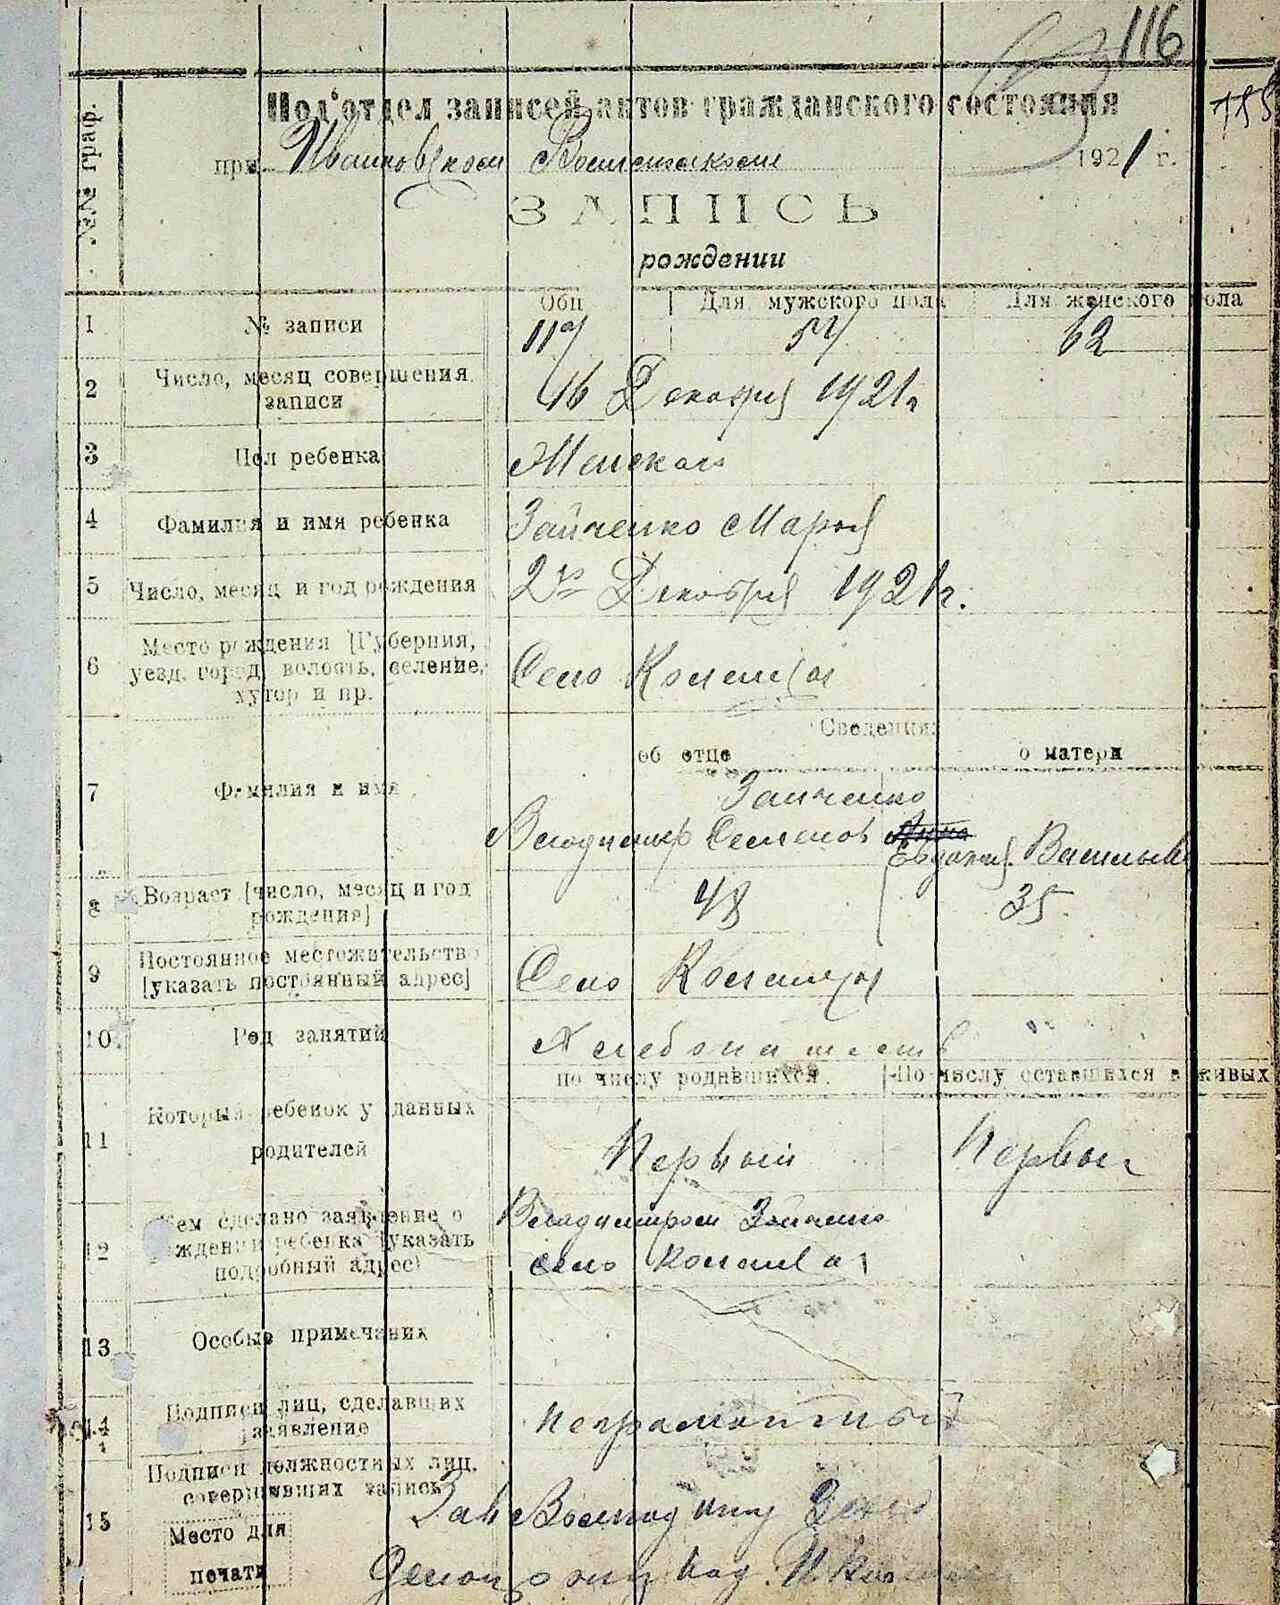 116
Под'отдел записей актов гражданского состояния
при Ивановском Волисполкоме 1921 г.
ЗАПИСЬ
рождении
№№ граф.
Общ Для мужского пола Для женского пола
1 № записи 119 57 62
2 Число, месяц совершения записи 16 Декабря 1921 г
3 Пол ребенка Женского
4 Фамилия и имя ребенка Зайченко Мария
5 Число, месяц и год рождения 2го Декабря 1921 г.
6 Место рождения [Губерния,
уезд, город, волость, селение,
хутор и пр. Село
Сведения:
об отце о матери
7 Фамилия и имя Зайченко
Владимир Семенов Евдокия Васильев
8 Возраст [число, месяц и год
рождения] 48 35
9 Постоянное местожительство
[указать постоянный адрес] Село
10 Род занятий Хлебопашест
по числу родившихся По числу оставшихся в живых
11 Который ребенок у данных
родителей Первый Первый
12 Кем сделано заявление о Владимиром Зайченко
рождении ребенка [указать
подробный адрес) село
13 Особые примечания
14 Подписи лиц, сделавших
заявление Неграмотный
Подписи должностных лиц,
совершивших запись
15 Зав
Место для
печати